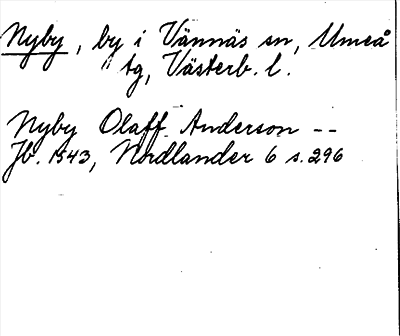 Nyby, by i Vännäs sn, Umeå
tg, Västerb. l.
Nyby Olaff Anderson --
Jb. 1543, Nordlander 6 s. 296